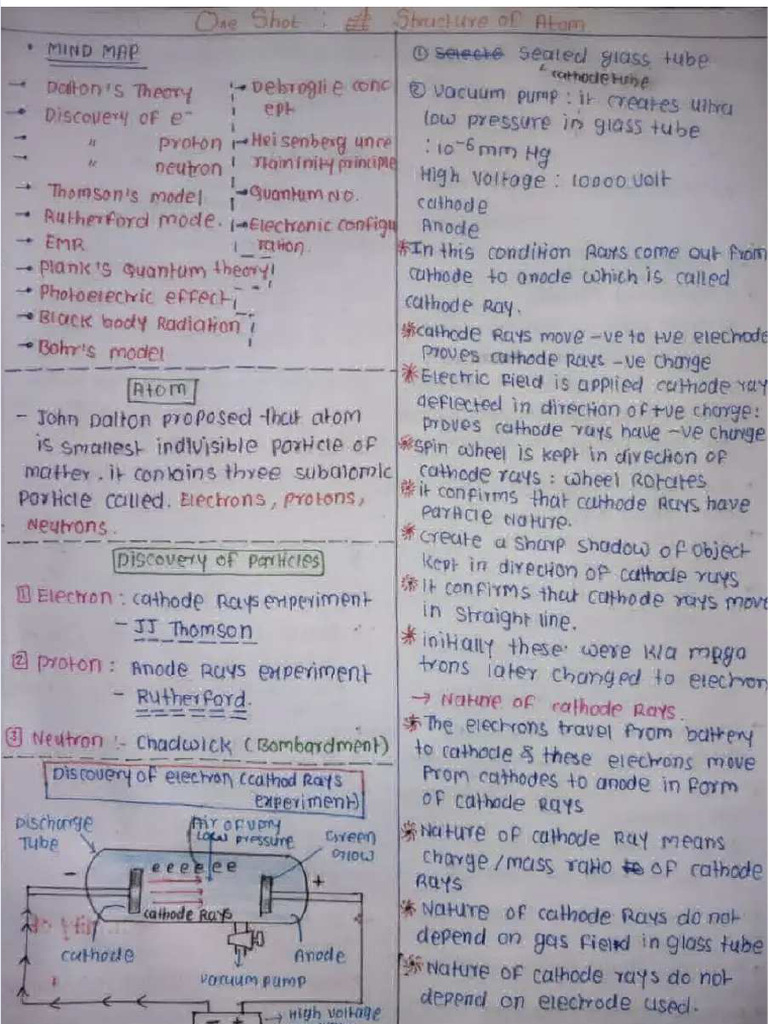 One Shot : Structure of Atom
• MIND MAP
→ Dalton's Theory
→ Discovery of e⁻
→ " proton
→ " neutron
→ Thomson's model
→ Rutherford mode.
→ EMR
→ Plank's Quantum theory
→ Photoelectric effect
→ Black body Radiation
→ Bohr's model
→ Debroglie conc
ept
→ Heisenberg unce
rtaininity principle
→ Quantum NO.
→ Electronic configu
ration.
Atom
- John Dalton proposed that atom
is smallest indivisible particle of
matter. it contains three subatomic
particle called. Electrons, protons,
Neutrons.
Discovery of Particles
1 Electron : cathode Rays experiment
- JJ Thomson
2 Proton : Anode Rays experiment
- Rutherford.
3 Neutron :- Chadwick (Bombardment)
Discovery of electron (cathod Rays
experiment)
Discharge
Tube
Air of very
low pressure
Green
Glow
- e e e e e e +
cathode Rays
cathode
Anode
vacuum pump
- +
→ High voltage
① Selecte Sealed glass tube
cathode tube
② Vacuum pump : it creates ultra
low pressure in glass tube
: 10⁻⁶ mm Hg
High Voltage : 10000 volt
cathode
Anode
*In this condition Rays come out from
cathode to anode which is called
cathode Ray.
*cathode Rays move -ve to +ve electrode
proves cathode Rays -ve charge
*Electric field is applied cathode ray
deflected in direction of +ve charge:
proves cathode rays have -ve charge
*spin wheel is kept in direction of
cathode rays : wheel Rotates
*it confirms that cathode Rays have
particle Nature.
*create a sharp shadow of object
kept in direction of cathode rays
*It confirms that cathode rays move
in straight line.
*initially these were k/a mpga
trons later changed to electron
→ Nature of cathode Rays.
*The electrons travel from battery
to cathode & these electrons move
from cathodes to anode in form
of cathode Rays
*Nature of cathode Ray means
charge/mass ratio of cathode
Rays
*Nature of cathode Rays do not
depend on gas field in glass tube
*Nature of cathode rays do not
depend on electrode used.